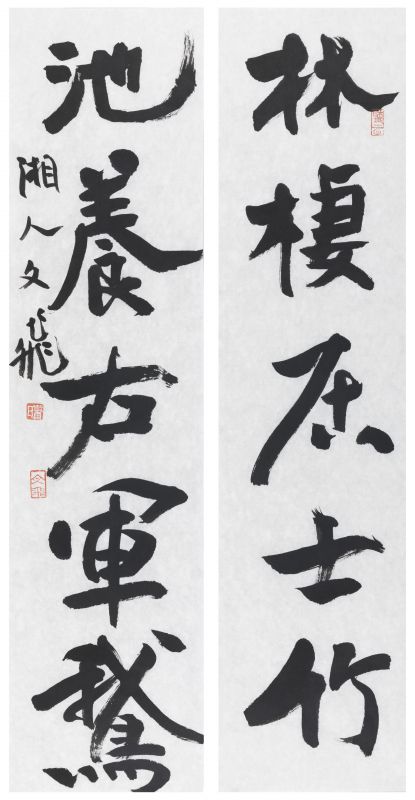 林棲居士竹
池養右軍鵝
湘人文飛